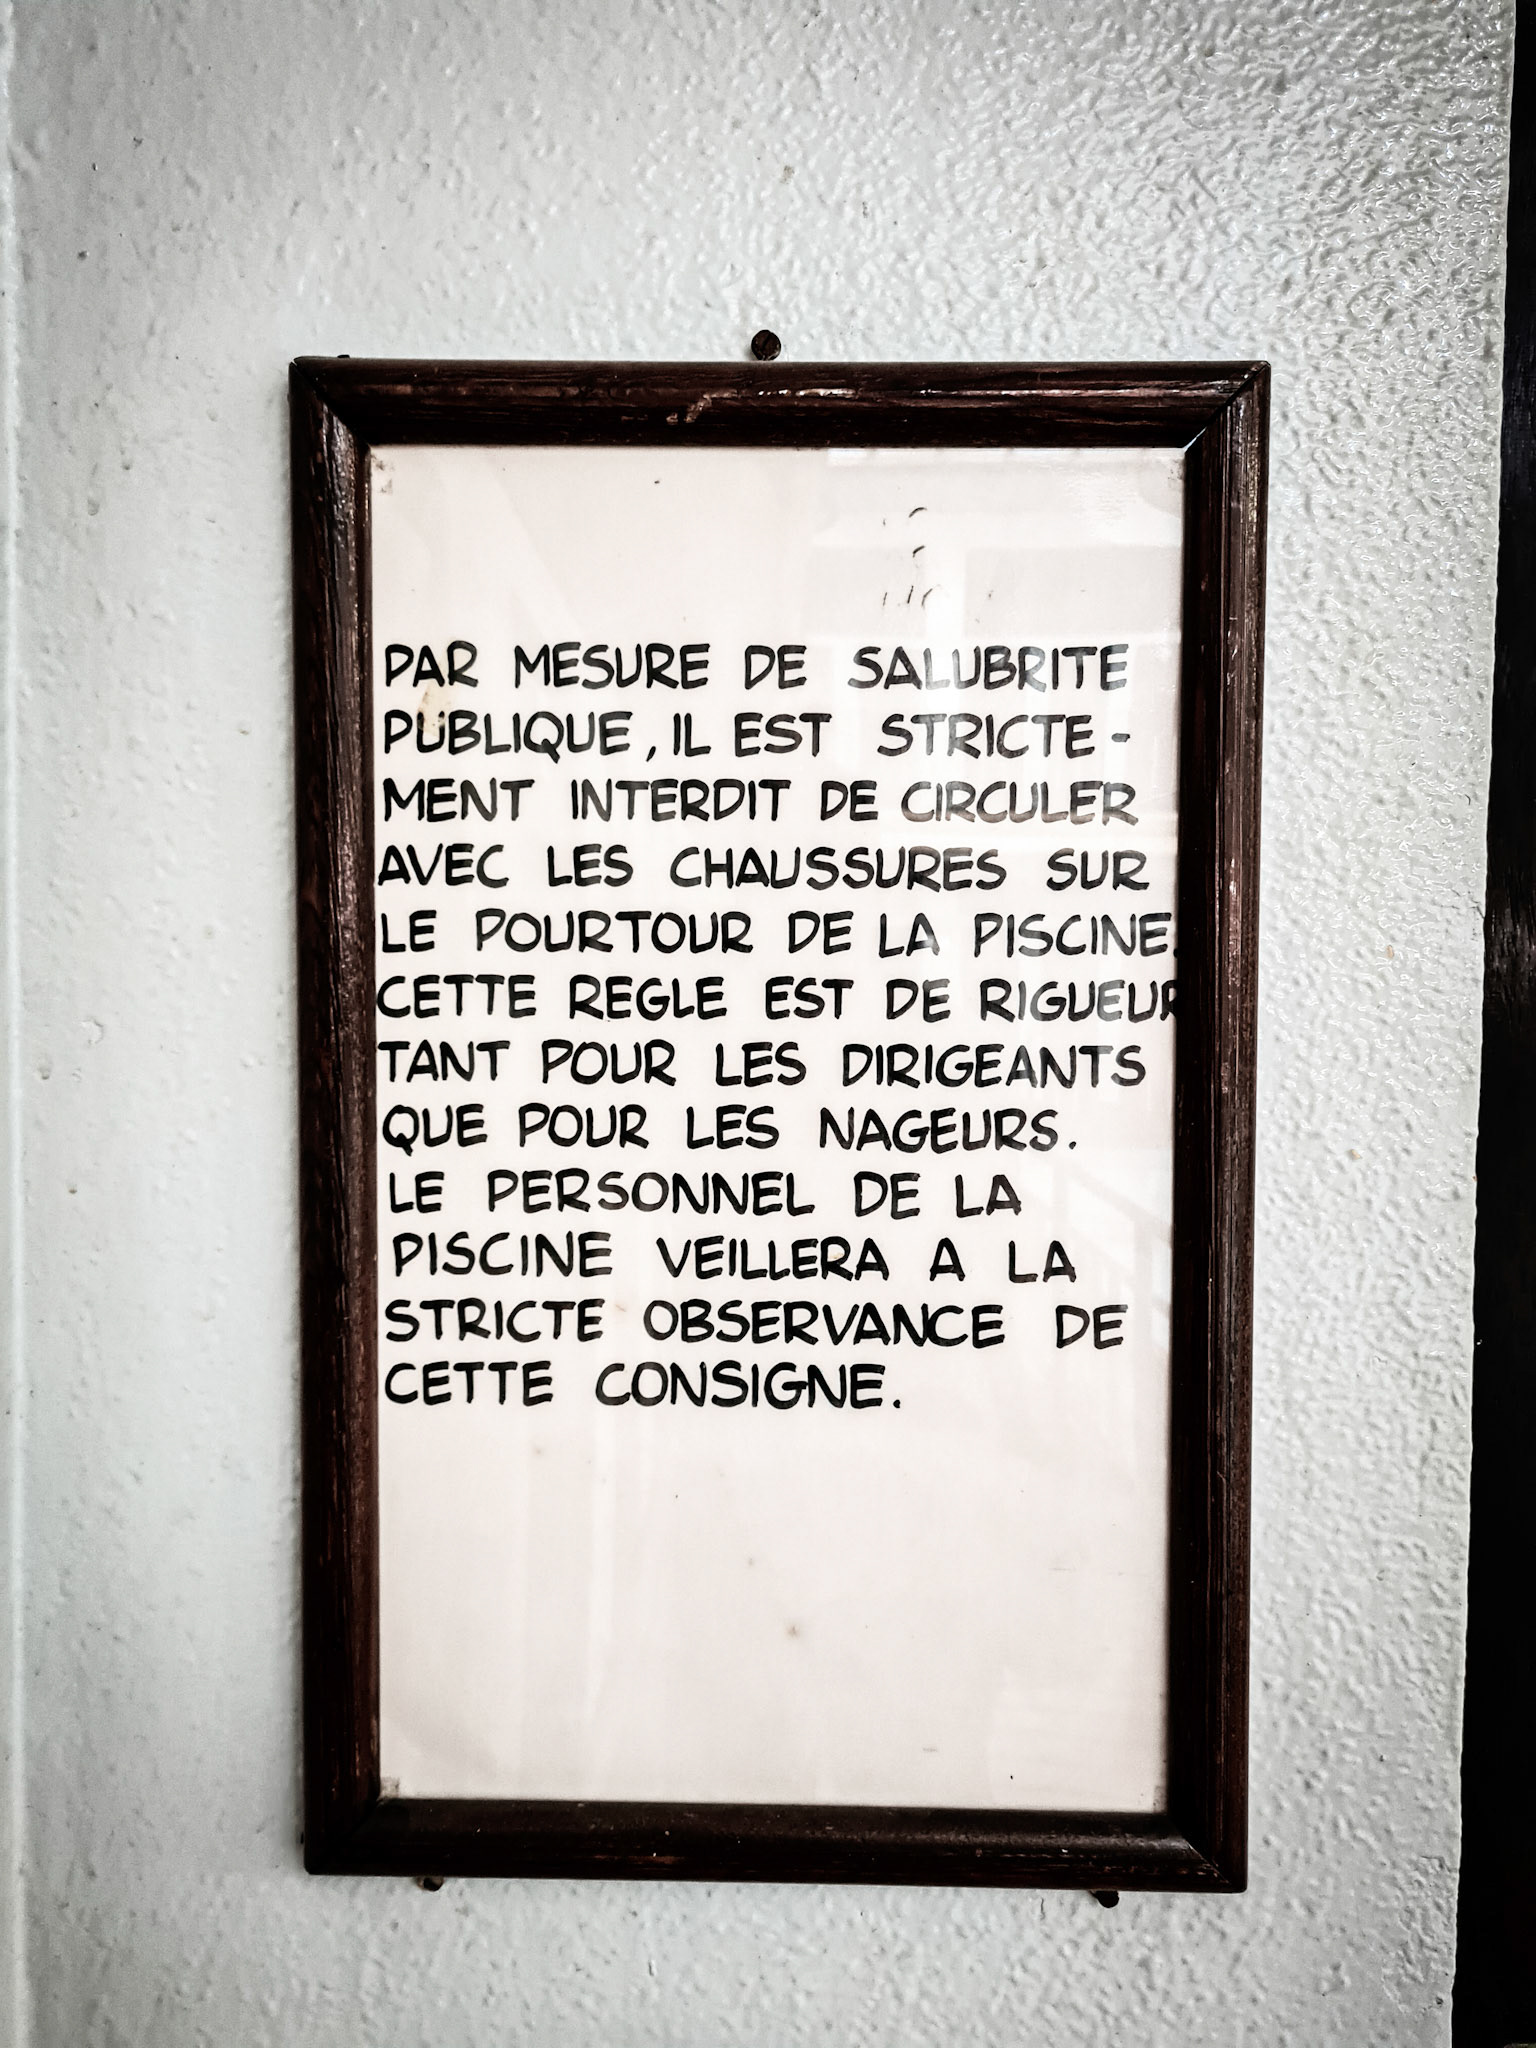 PAR MESURE DE SALUBRITE
PUBLIQUE, IL EST STRICTE-
MENT INTERDIT DE CIRCULER
AVEC LES CHAUSSURES SUR
LE POURTOUR DE LA PISCINE.
CETTE REGLE EST DE RIGUEUR
TANT POUR LES DIRIGEANTS
QUE POUR LES NAGEURS.
LE PERSONNEL DE LA
PISCINE VEILLERA A LA
STRICTE OBSERVANCE DE
CETTE CONSIGNE.